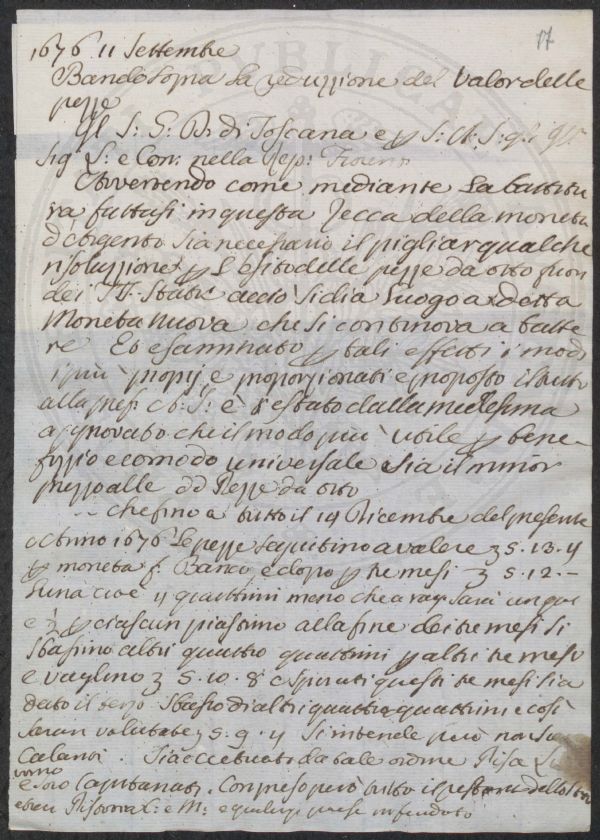 17
1676 11 Settembre
Bando sopra la reduzzione del valor delle
pezze
Il S: G: D: di Toscana e p S: A: S: gli
Sig L: e Con: nella Rep: Fiorent
Avvenendo come mediante la battitu
ra fattasi in questa Zecca della moneta
d'Argento sia necessario il pigliar qualche
risoluzzione p l'esito delle pezze da otto fuori
dei Stati acciò si dia luogo a detta
Moneta nuova che si continova a batte
re Et esaminato p tali effetti i modi
i più proprij e proporzionati e proposto il tutto
alla A: S: è restato dalla medesima
approvato che il modo più utile p bene-
fizzio e comodo universale sia il minor
prezzo alle dd Pezze da otto
che fino a tutto il 14 Dicembre del presente
Anno 1676 le pezze seguitino a valere 5. 13. 4
p moneta f. Banco e dopo p tre mesi 5. 12. –
l'una cioè 4 quattrini meno che a rag sarà
e p ciascun piastrino alla fine dei tre mesi si
sbassino altri quattro quattrini p altri tre mesi
e vaglino 5. 10. 8 e spirati questi tre mesi sia
dato il terzo sbasso di altri quattro quattrini e così
saran valutate 5. 9. 4 si intende però non sia
Calanti. Sia accettuato da tale ordine Pisa
vorno
e loro Capitanati. Compreso però tutto il restante dello Stato